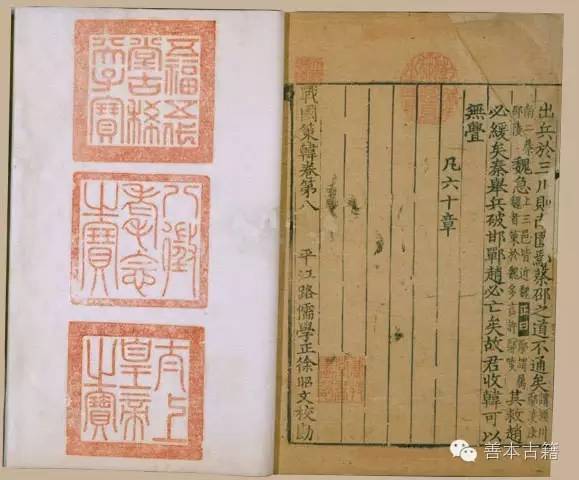 出兵於三川則圍鄢蔡邵之道不通矣
魏急上三邑皆近魏正曰其救趙
必緩矣秦舉兵破邯鄲趙必亡矣故君收韓可以
無舋
凡六十章
戰國策韓卷第八
平江路儒學正徐昭文校勘
五福五代
堂古稀
天子寶
八徵
耄念
之寶
太上
皇帝
之寶
善本古籍